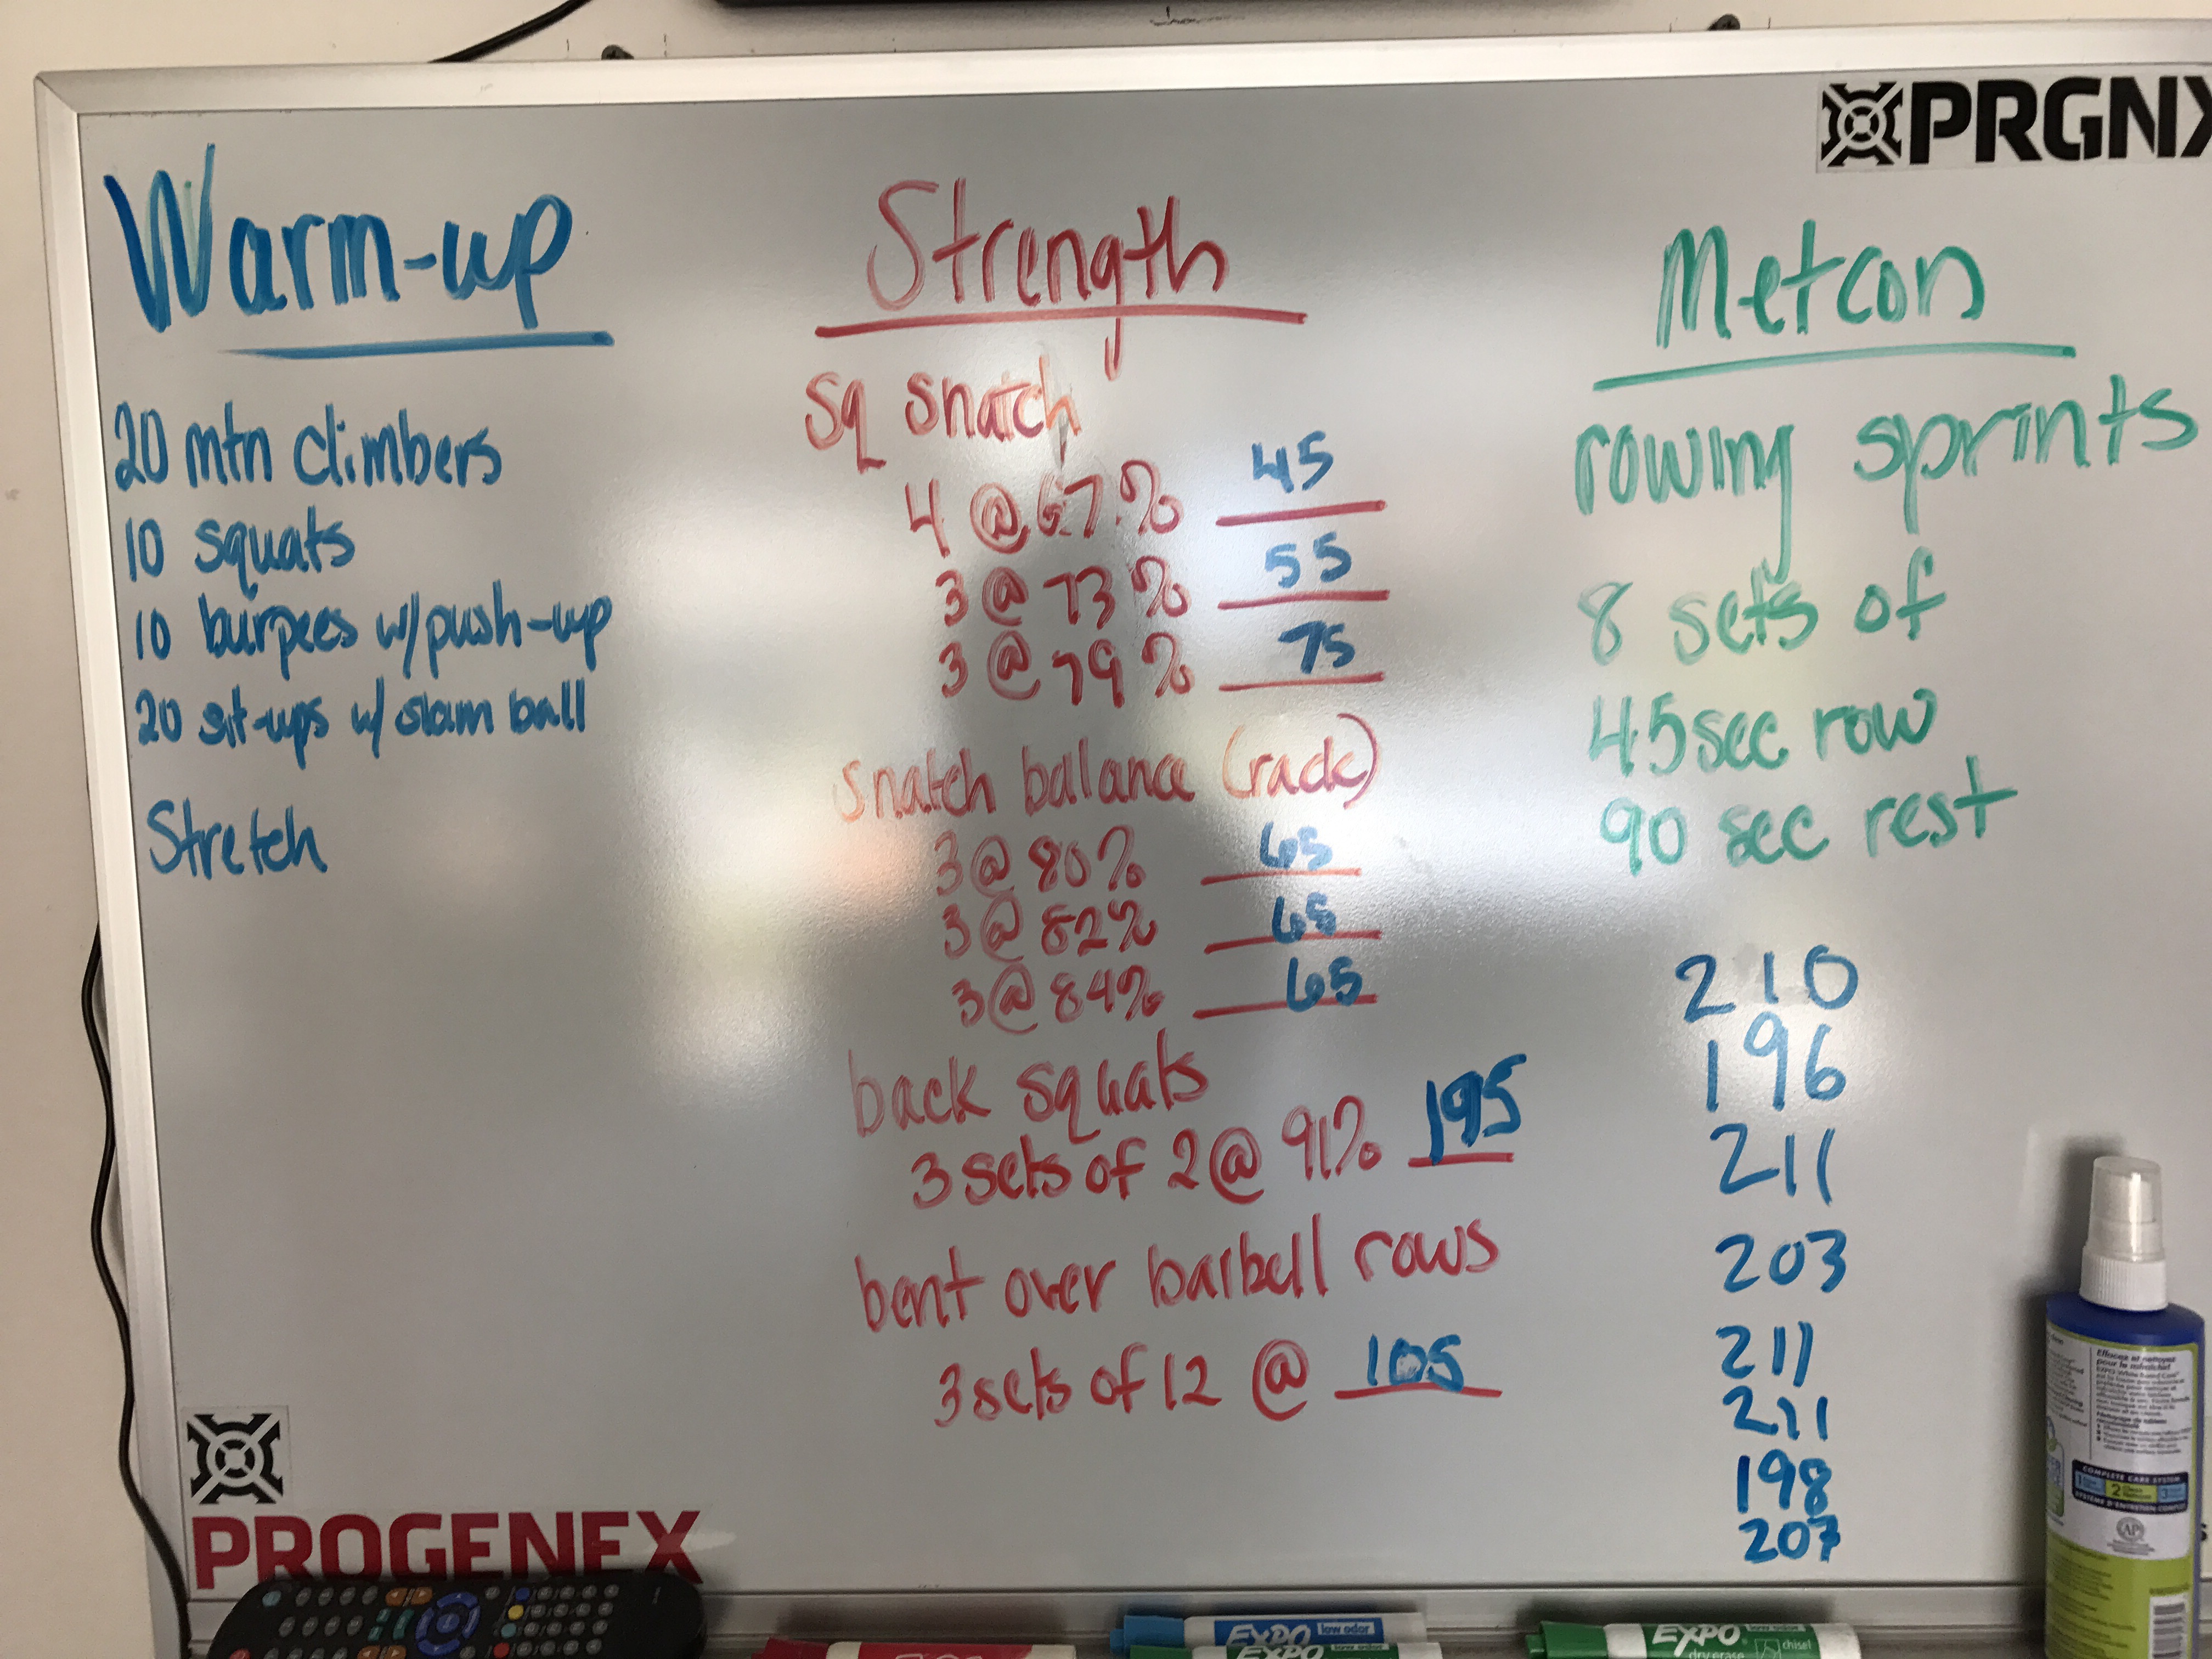 PRGNX
Warm-up
20 mtn climbers
10 squats
10 burpees w/push-up
20 sit-ups w/ slam ball
Stretch
Strength
sq snatch
4 @ 67% 45
3 @ 73% 55
3 @ 79% 75
snatch balance (rack)
3 @ 80% 65
3 @ 82% 65
3 @ 84% 65
back squats
3 sets of 2 @ 91% 195
bent over barbell rows
3 sets of 12 @ 105
Metcon
rowing sprints
8 sets of
45 sec row
90 sec rest
210
196
211
203
211
211
198
207
PROGENEX
EXPO low odor
EXPO
EXPO chisel
dry erase
COMPLETE CARE SYSTEM
2
AP